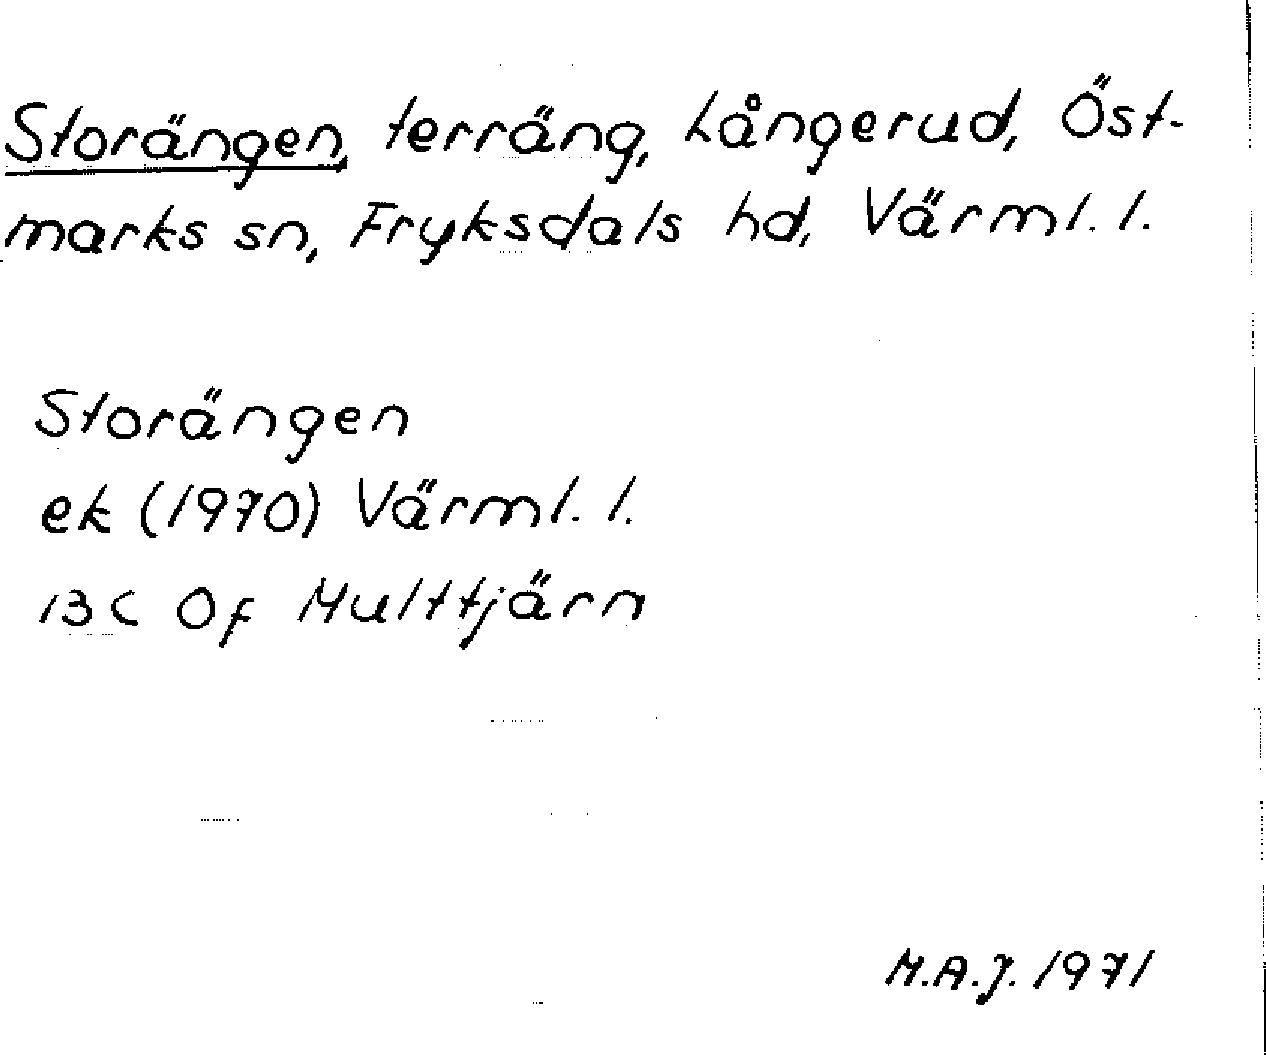 Storängen, terräng, Långerud, Öst-
marks sn, Fryksdals hd, Värml. l.
Storängen
ek (1970) Värml. l.
13C 0f Multtjärn
M.A.J. 1971